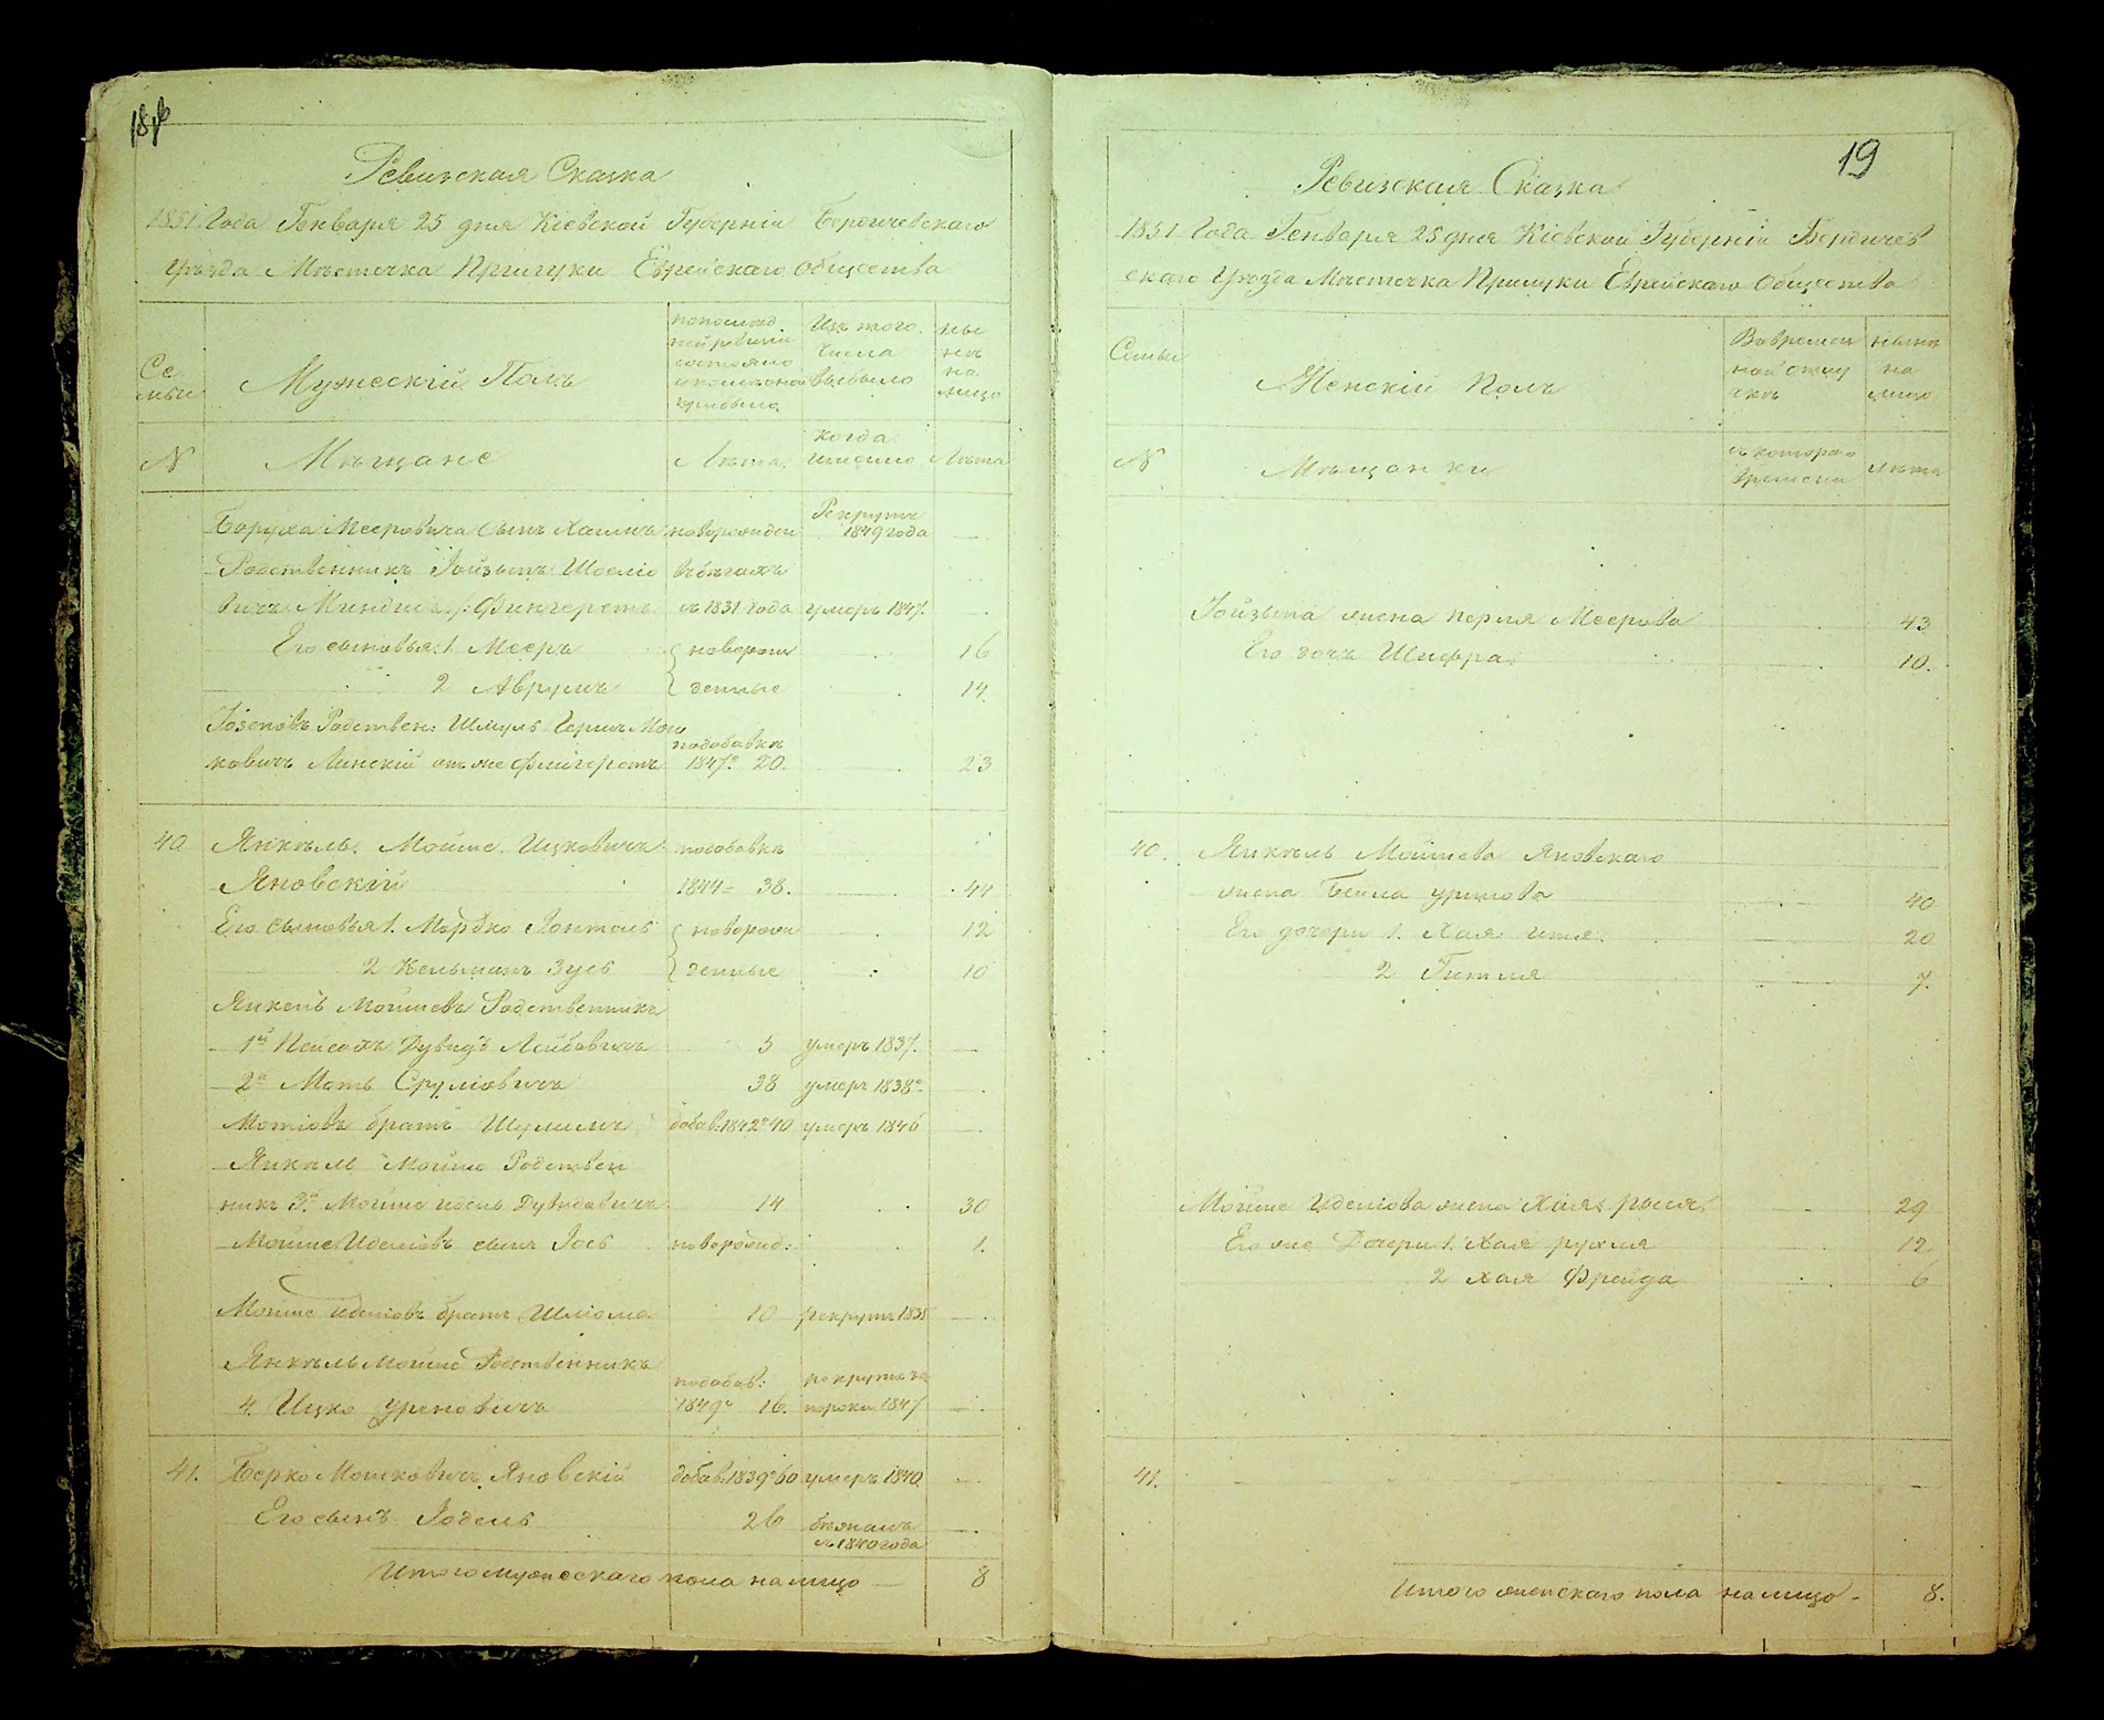 18об
Ревизская Сказка
1851 Года Генваря 25 дня Кіевской Губерніи Бердичевскаго
Уѣзда Мѣстечка Прилуки Еврейскаго Общества
Се
мьи
Мужескій Полъ
по послѣд
ней ревизіи
состояло
и после оной
прибыло
Изъ того
Числа
выбыло
ны
нѣ
на
лицо
N
Мѣщане
Лѣта
когда
именно
Лѣта
Боруха Мееровича сынъ Хаимъ новорожден Рекрутъ 1849 года
Родственникъ Іойзыпъ Шоеліо въ бѣгахъ
вичъ /: Фингеретъ съ 1831 года умеръ 1847.
Его сыновья: 1. Мееръ новорож 16
2 Аврумъ денные 14
Іозеповъ Родствен: Шмуль Герш Мош
ковичъ Линскій онъ же Фингеретъ подобавкѣ 1847го 20. 23
40 Янкель Мойше Ицковичъ подобавкѣ
Яновскій 1844 - 38. 44
Его сыновья 1. Мордко Іонтель новорож 12
2 Кельманъ Зусь денные 10
Янкель Мошиевъ Родственникъ
1й Пейсахъ Дувидъ Лейбовичъ 5 умеръ 1837.
2й Моть Сруліовичъ 38 умеръ 1838го
Мотіовъ братъ Шулимъ добав: 1842го 40 умеръ 1846
Янкель Мойше Родствен
никъ 3й Мойше Идель Дувидовичъ 14 30
Мойше Иделіовъ сынъ Іось новорожд: 1.
Мойше Иделіовъ братъ Шліома 10 рекрутъ 1835
Янкель Мойше Родственникъ
4. Ицко Уриновичъ подобав: 1849го 16. 1847
41. Берко Мошковичъ Яновскій добав: 1839го 60 умеръ 1840
Его сынъ Іодель 26 бѣжалъ съ 1840 года
Итого мужескаго пола на лицо 8
19
Ревизская Сказка
1851 Года Генваря 25 дня Кіевской Губерніи Бердичев
скаго Уѣзда Мѣстечка Прилуки Еврейскаго Общества
Семьи
Женскій Полъ
Во времен
ной отлу
чкѣ
нынѣ
на
лицо
N
Мѣщанки
съ котораго
времени
лѣта
Іойзыпа жена Перля Меерова 43
Его дочь Шифра 10.
40. Янкель Мойшева Яновскаго
жена Бейла Уринова 40
Его дочери 1. Хая Итя 20
2 Гитля 7.
Мойше Иделіова жена Хая Рыся 29
Его же Дочери 1. Хая Рухля 12
2 Хая Фрейда 6
41.
Итого женскаго пола на лицо - 8.